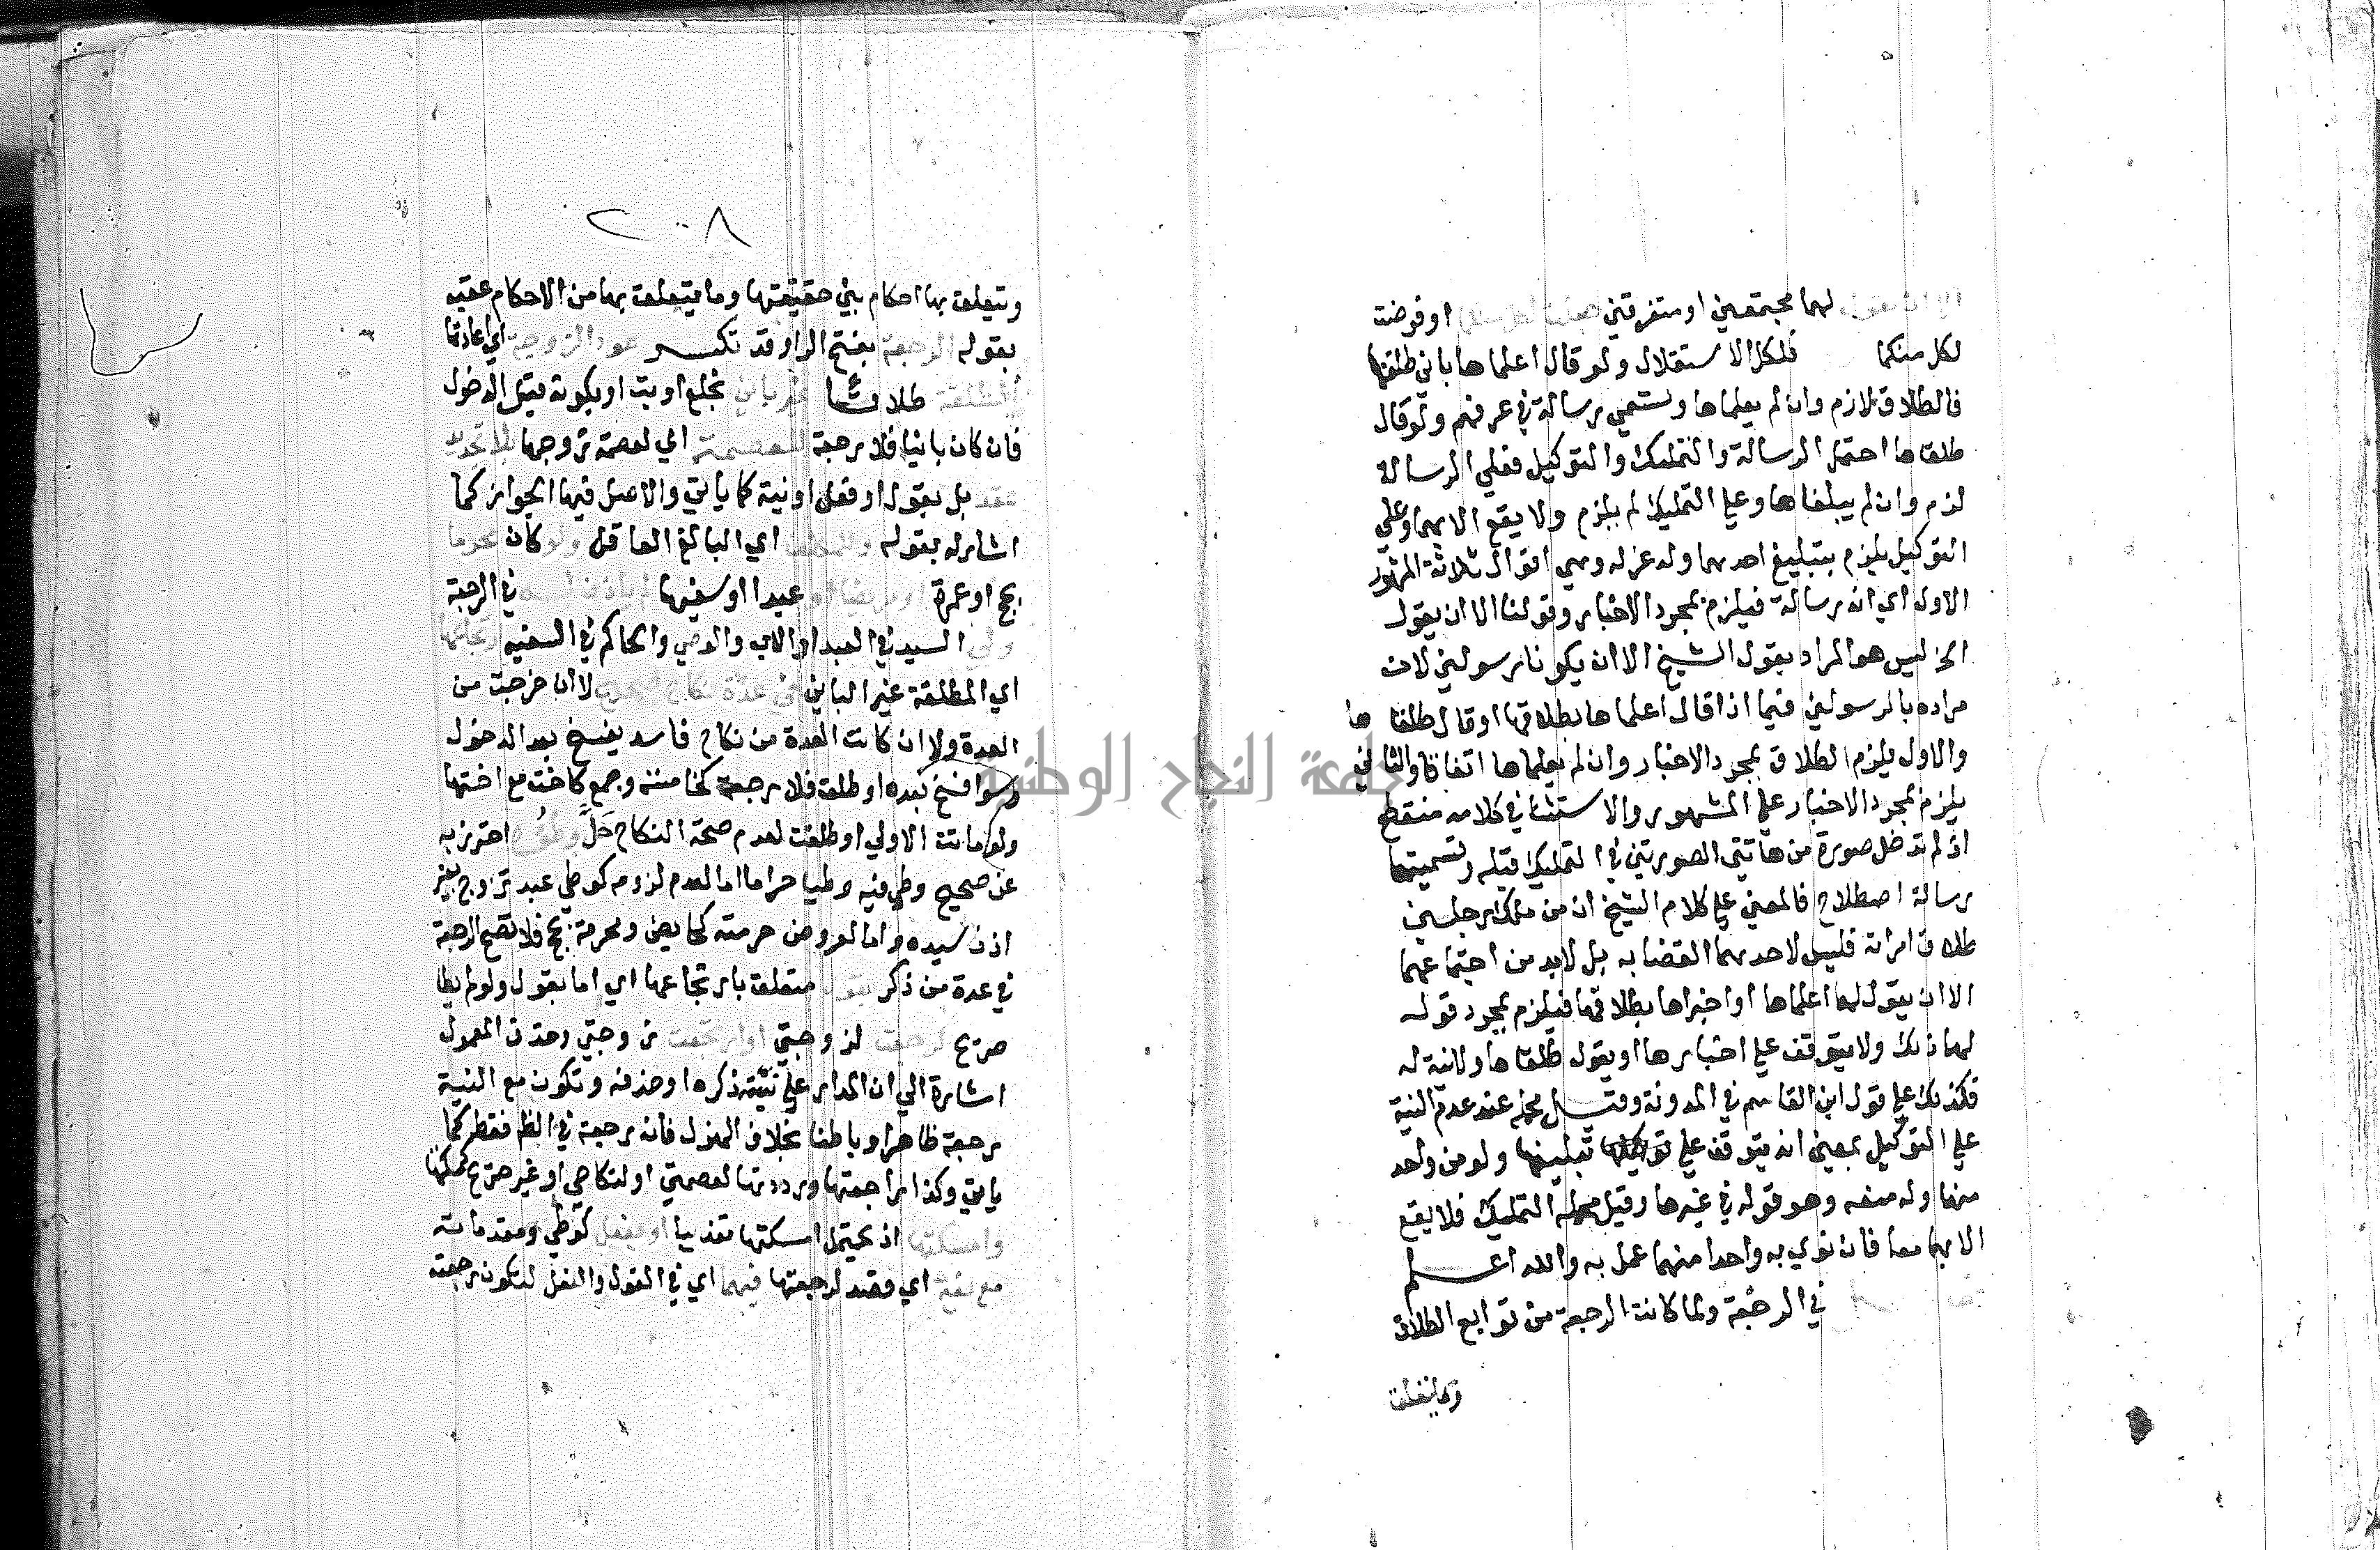 الا ان يقول لهما مجتمعين او متفرقين او فوضت
لكل منكما فلكل الاستقلال ولو قال اعلماها باني طلقتها
فالطلاق لازم وان لم يعلماها وتسمي رسالة في عرفهم ولو قال
طلقاها احتمل الرسالة والتمليك والتوكيل فعلي الرسالة
لزم وان لم يبلغاها وعلي التمليك لم يلزم ولا يقع الا بهما وعلي
التوكيل يلزم بتبليغ احدهما وله عزله وهي اقوال ثلاثة المشهور
الاول اي انه رسالة فيلزم بمجرد الاخبار وقولنا الا ان يقول
الخ ليس هو المراد بقول الشيخ الا ان يكونا رسولين لان
مراده بالرسولين فيما اذا قال اعلماها بطلاقها او قال طلقاها
والاول يلزم الطلاق بمجرد الاخبار وان لم يعلماها اتفاقا والثاني
يلزم بمجرد الاخبار علي المشهور والاستثنا في كلامه منقطع
اذ لم تدخل صورة من هاتي الصورتين في التمليك قبله وتسميتها
رسالة اصطلاح فالمعني علي كلام الشيخ ان من ملك رجلين
طلاق امراته فليس لاحدهما القضا به بل لابد من اجتماعهما
الا ان يقول لهما اعلماها او اخبراها بطلاقها فيلزم بمجرد قوله
لهما ذلك ولا يتوقف علي اخبارها او يقول طلقاها ولا نية له
فكذلك علي قول ابن القاسم في المدونة وقيل محله عند عدم النية
علي التوكيل بمعني انه يتوقف علي تبليغها ولو من واحد
منهما وله منعه وهو قوله في غيرها وقيل محله التمليك فلا يقع
الا بهما معا فان نوي به واحدا منهما عمل به والله اعلم
في الرجعة ولما كانت الرجعة من توابع الطلاق
وتتعلق
٢٠٨
وتتعلق بها احكام بين حقيقتها وما يتعلق بها من الاحكام عقبه
بقوله الرجعة بفتح الرا وقد تكسر عود الزوجية اي اعادتها
المطلقة طلاقا غير باين بخلع او بت او بكونه قبل الدخول
فان كان باينا فلا رجعة للعصمة الي لعصمة زوجها بلا تجديد
عقد بل بقول او فعل او نية كما ياتي والاصل فيها الجواز كما
اشار له بقوله وللمكلف اي البالغ العاقل ولو كان محرما
بحج او عمرة او مريضا او عبدا او سفيها لم ياذن له في الرجعة
ولي السيد في العبد او الاب والوصي والحاكم في السفيه ارتجاعها
اي المطلقة غير الباين في عدة نكاح صحيح لا ان خرجت من
العدة ولا ان كانت العدة من نكاح فاسد يفسخ بعد الدخول
وسوا فسخ بعده او طلق فلا رجعة كخامسة وجمع كاخت مع اختها
ولو ماتت الاولي او طلقت لعدم صحة النكاح حل وطؤه احترز به
عن صحيح وطي فيه وطيا حراما اما لعدم لزومه كوطي عبد تزوج بغير
اذن سيده واما لعروض حرمته كحايض ومحرمة بحج فلا تصح الرجعة
في عدة من ذكر بقول متعلق بارتجاعها اي اما بقول ولو لم يطا
صريح كرجعت لزوجتي او ارتجعت زوجتي وحذف المعمول
اشارة الي ان المدار علي نيته ذكره او حذفه وتكون مع النية
رجعة ظاهرا وباطنا بخلاف الهزل فانه رجعة في الظاهر فقط كما
ياتي وكذا راجعتها ورددتها لعصمتي او لنكاحي او غير صريح كمسكتها
وامسكتها اذ يحتمل امسكتها تعذيبا او بفعل كوطي ومقدماته
مع نية اي قصد لرجعتها فيهما اي في القول والفعل لتكون رجعة